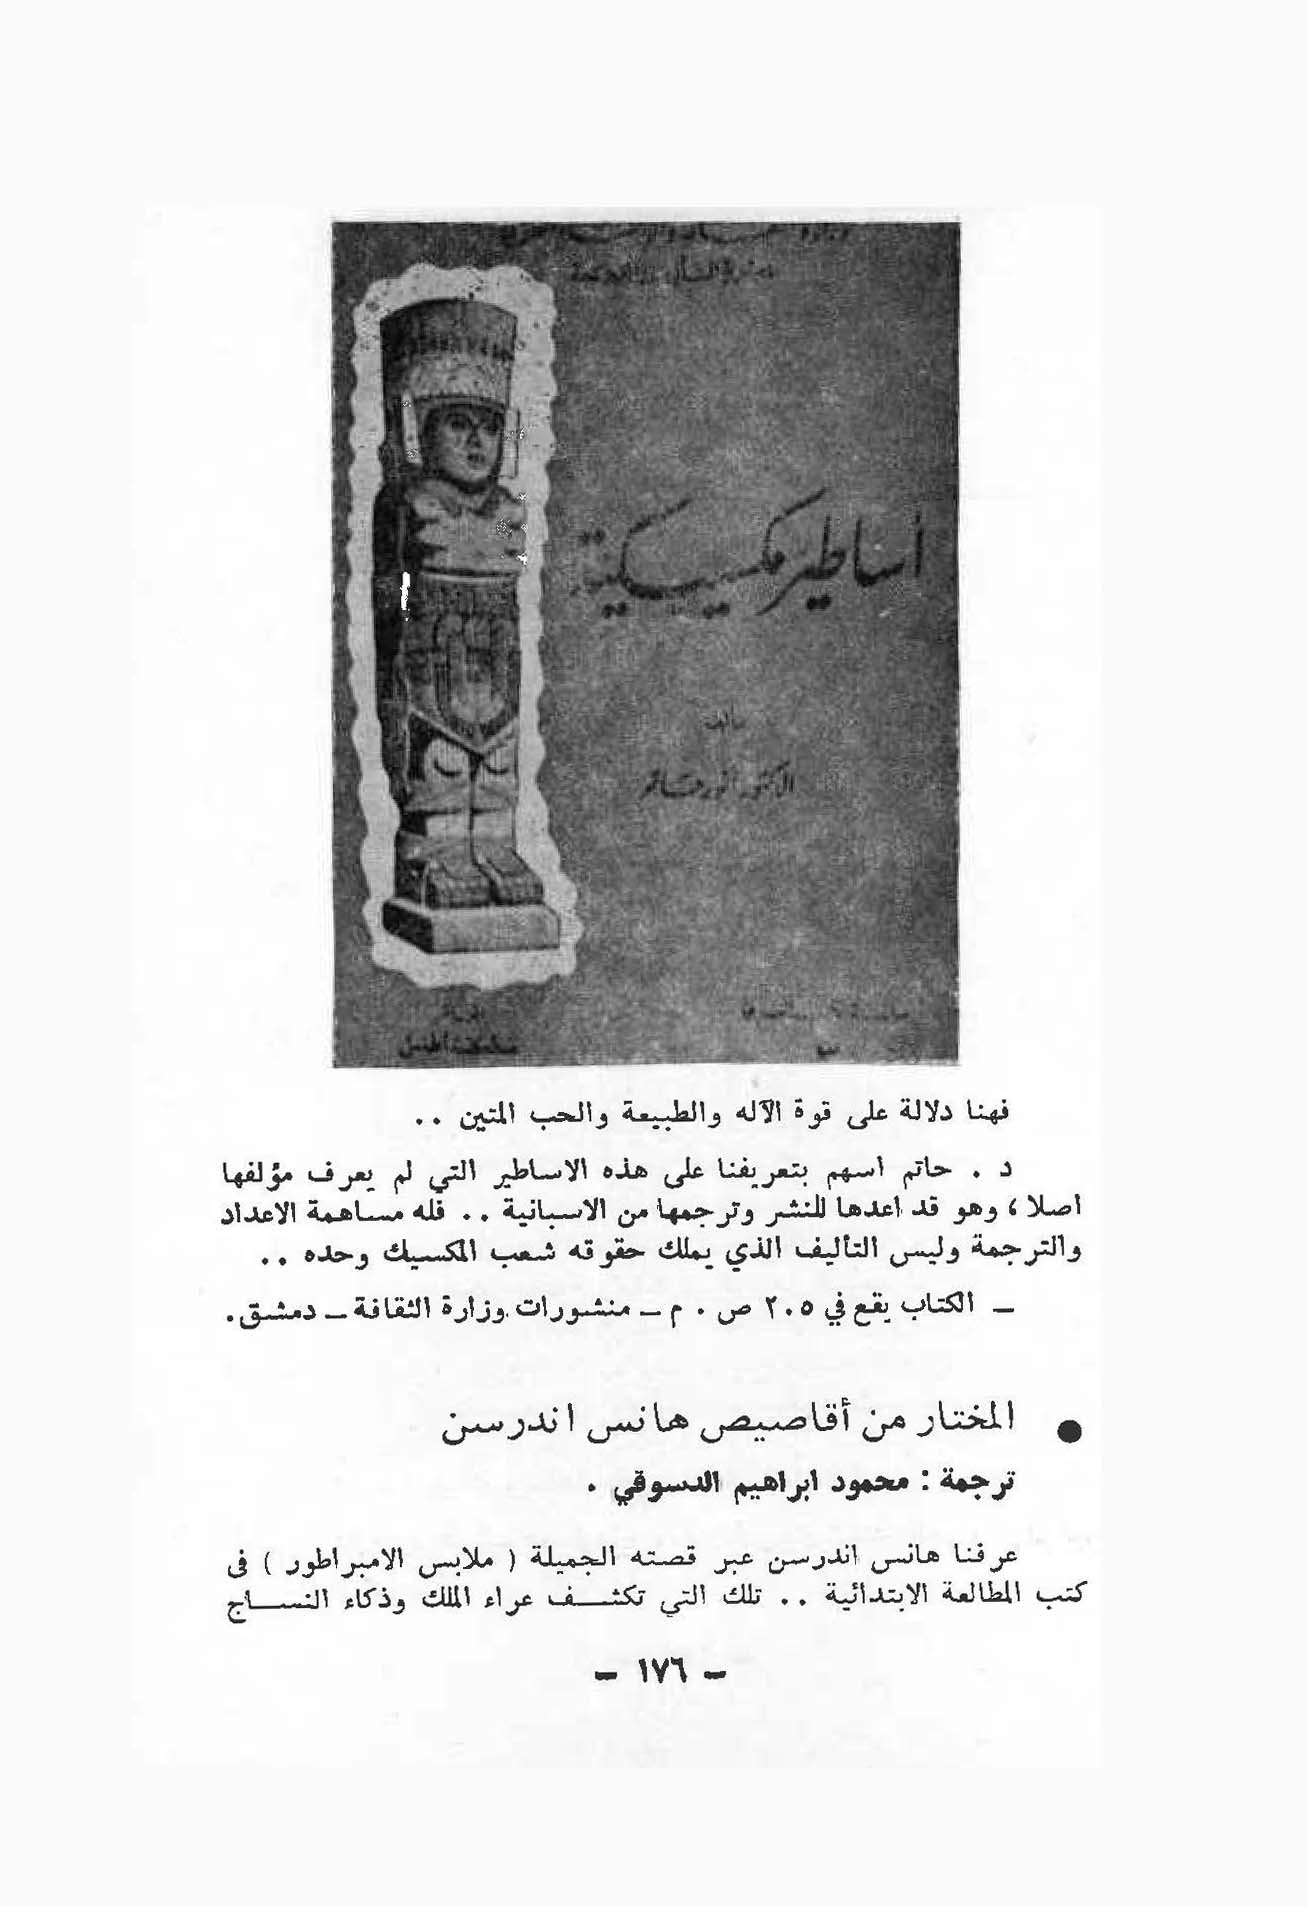 أساطير مكسيكية
تأليف
الدكتور أنور حاتم
فهنا دلالة على قوة الآله والطبيعة والحب المتين ..
د . حاتم اسهم بتعريفنا على هذه الاساطير التي لم يعرف مؤلفها
اصلا ، وهو قد اعدها للنشر وترجمها من الاسبانية .. فله مساهمة الاعداد
والترجمة وليس التأليف الذي يملك حقوقه شعب المكسيك وحده ..
ـ الكتاب يقع في ٢٠٥ ص . م ـ منشورات وزارة الثقافة ـ دمشق.
● المختار من أقاصيص هانس اندرسن
ترجمة : محمود ابراهيم الدسوقي .
عرفنا هانس اندرسن عبر قصته الجميلة ( ملابس الامبراطور ) في
كتب المطالعة الابتدائية .. تلك التي تكشف عراء الملك وذكاء النساج
ـ ١٧٦ ـ